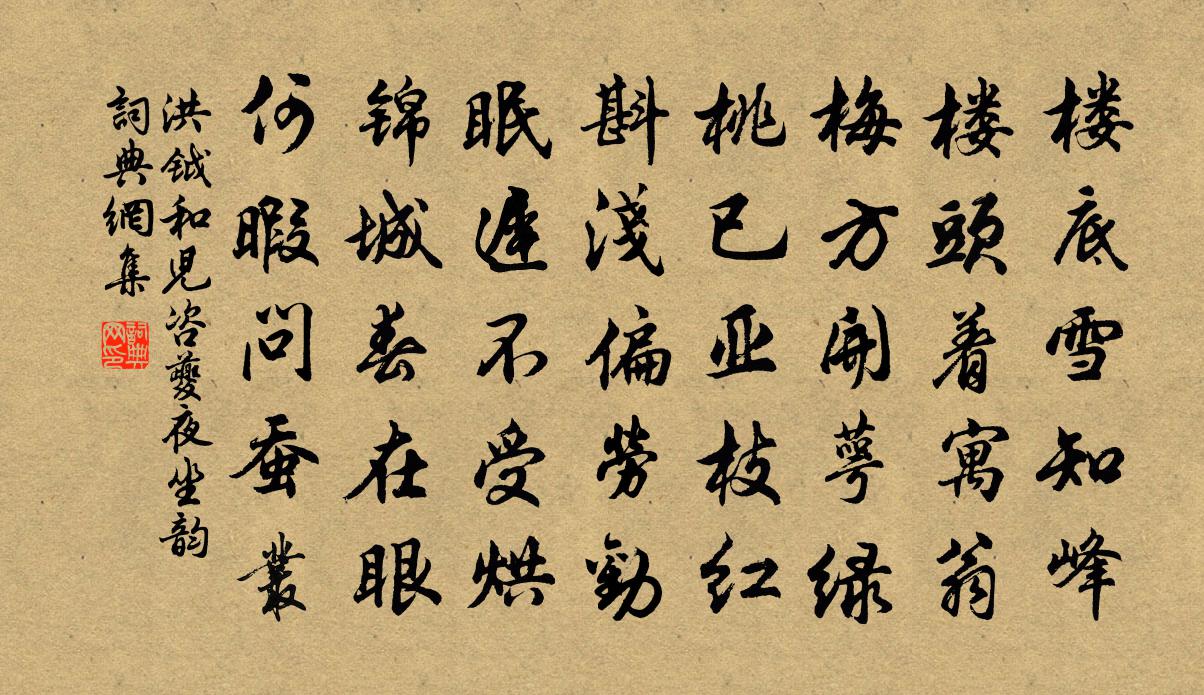 楼底雪知峰
楼頭着寓翁
梅方開萼绿
桃已亚枝红
斟淺偏劳勸
眠遲不受烘
锦城春在眼
何暇问蚕叢
洪钺和兒咨夔夜坐韵
詞典網集
詞典网印